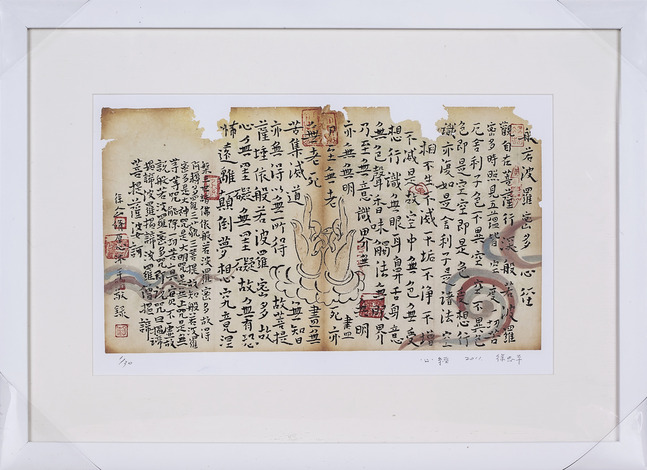 般若波羅密多心經
觀自在菩薩行深般若波羅
密多時照見五蘊皆空度一切苦
厄舍利子色不異空空不異色
色即是空空即是色受想行
識亦復如是舍利子是諸法空
相不生不滅不垢不淨不增
不減是故空中無色無受
想行識無眼耳鼻舌身意
無色聲香味觸法無眼界
乃至無意識界無無明
亦無無明盡
乃至無老死亦
無老死盡無
苦集滅道無知
亦無得以無所得故菩提
薩埵依般若波羅密多故
心無罣礙無罣礙故無有恐
怖遠離顛倒夢想究竟涅
槃三世諸佛依般若波羅密多故得
阿耨多羅三藐三菩提故知般若波羅
密多是大神咒是大明咒是無上咒是無
等等咒能除一切苦真實不虛故
說般若波羅密多咒即說咒曰揭諦
揭諦波羅揭諦波羅僧揭諦
菩提薩婆訶
敬錄
心經 2011 徐